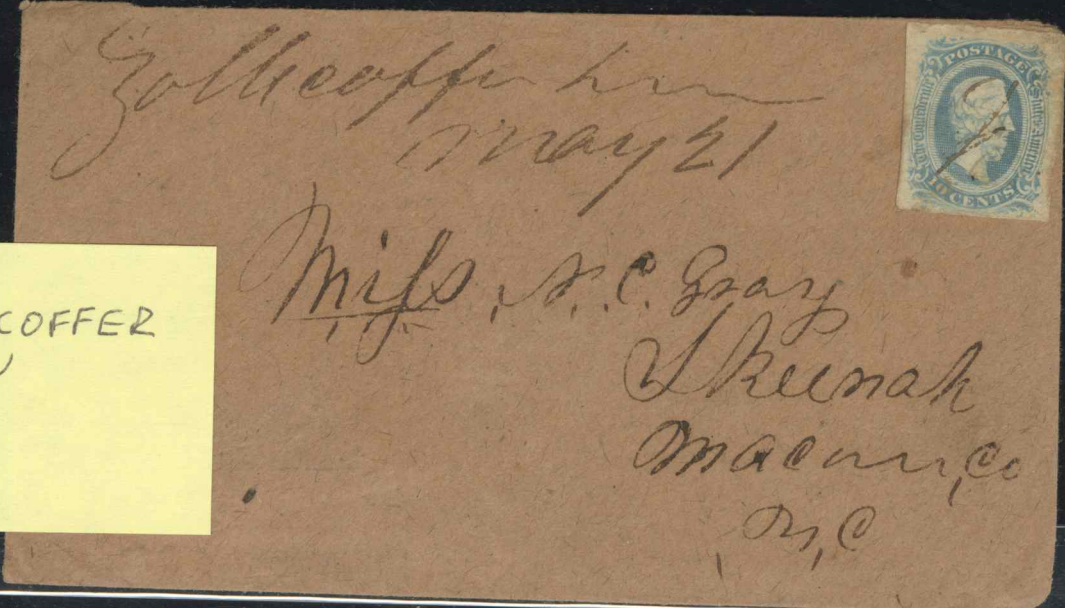 Zollicoffer Tenn
May 21
POSTAGE
The Confederate States of America
10 CENTS
Miss. N. C. Gray
Skeenah
Macon, Co
N, C
COFFER